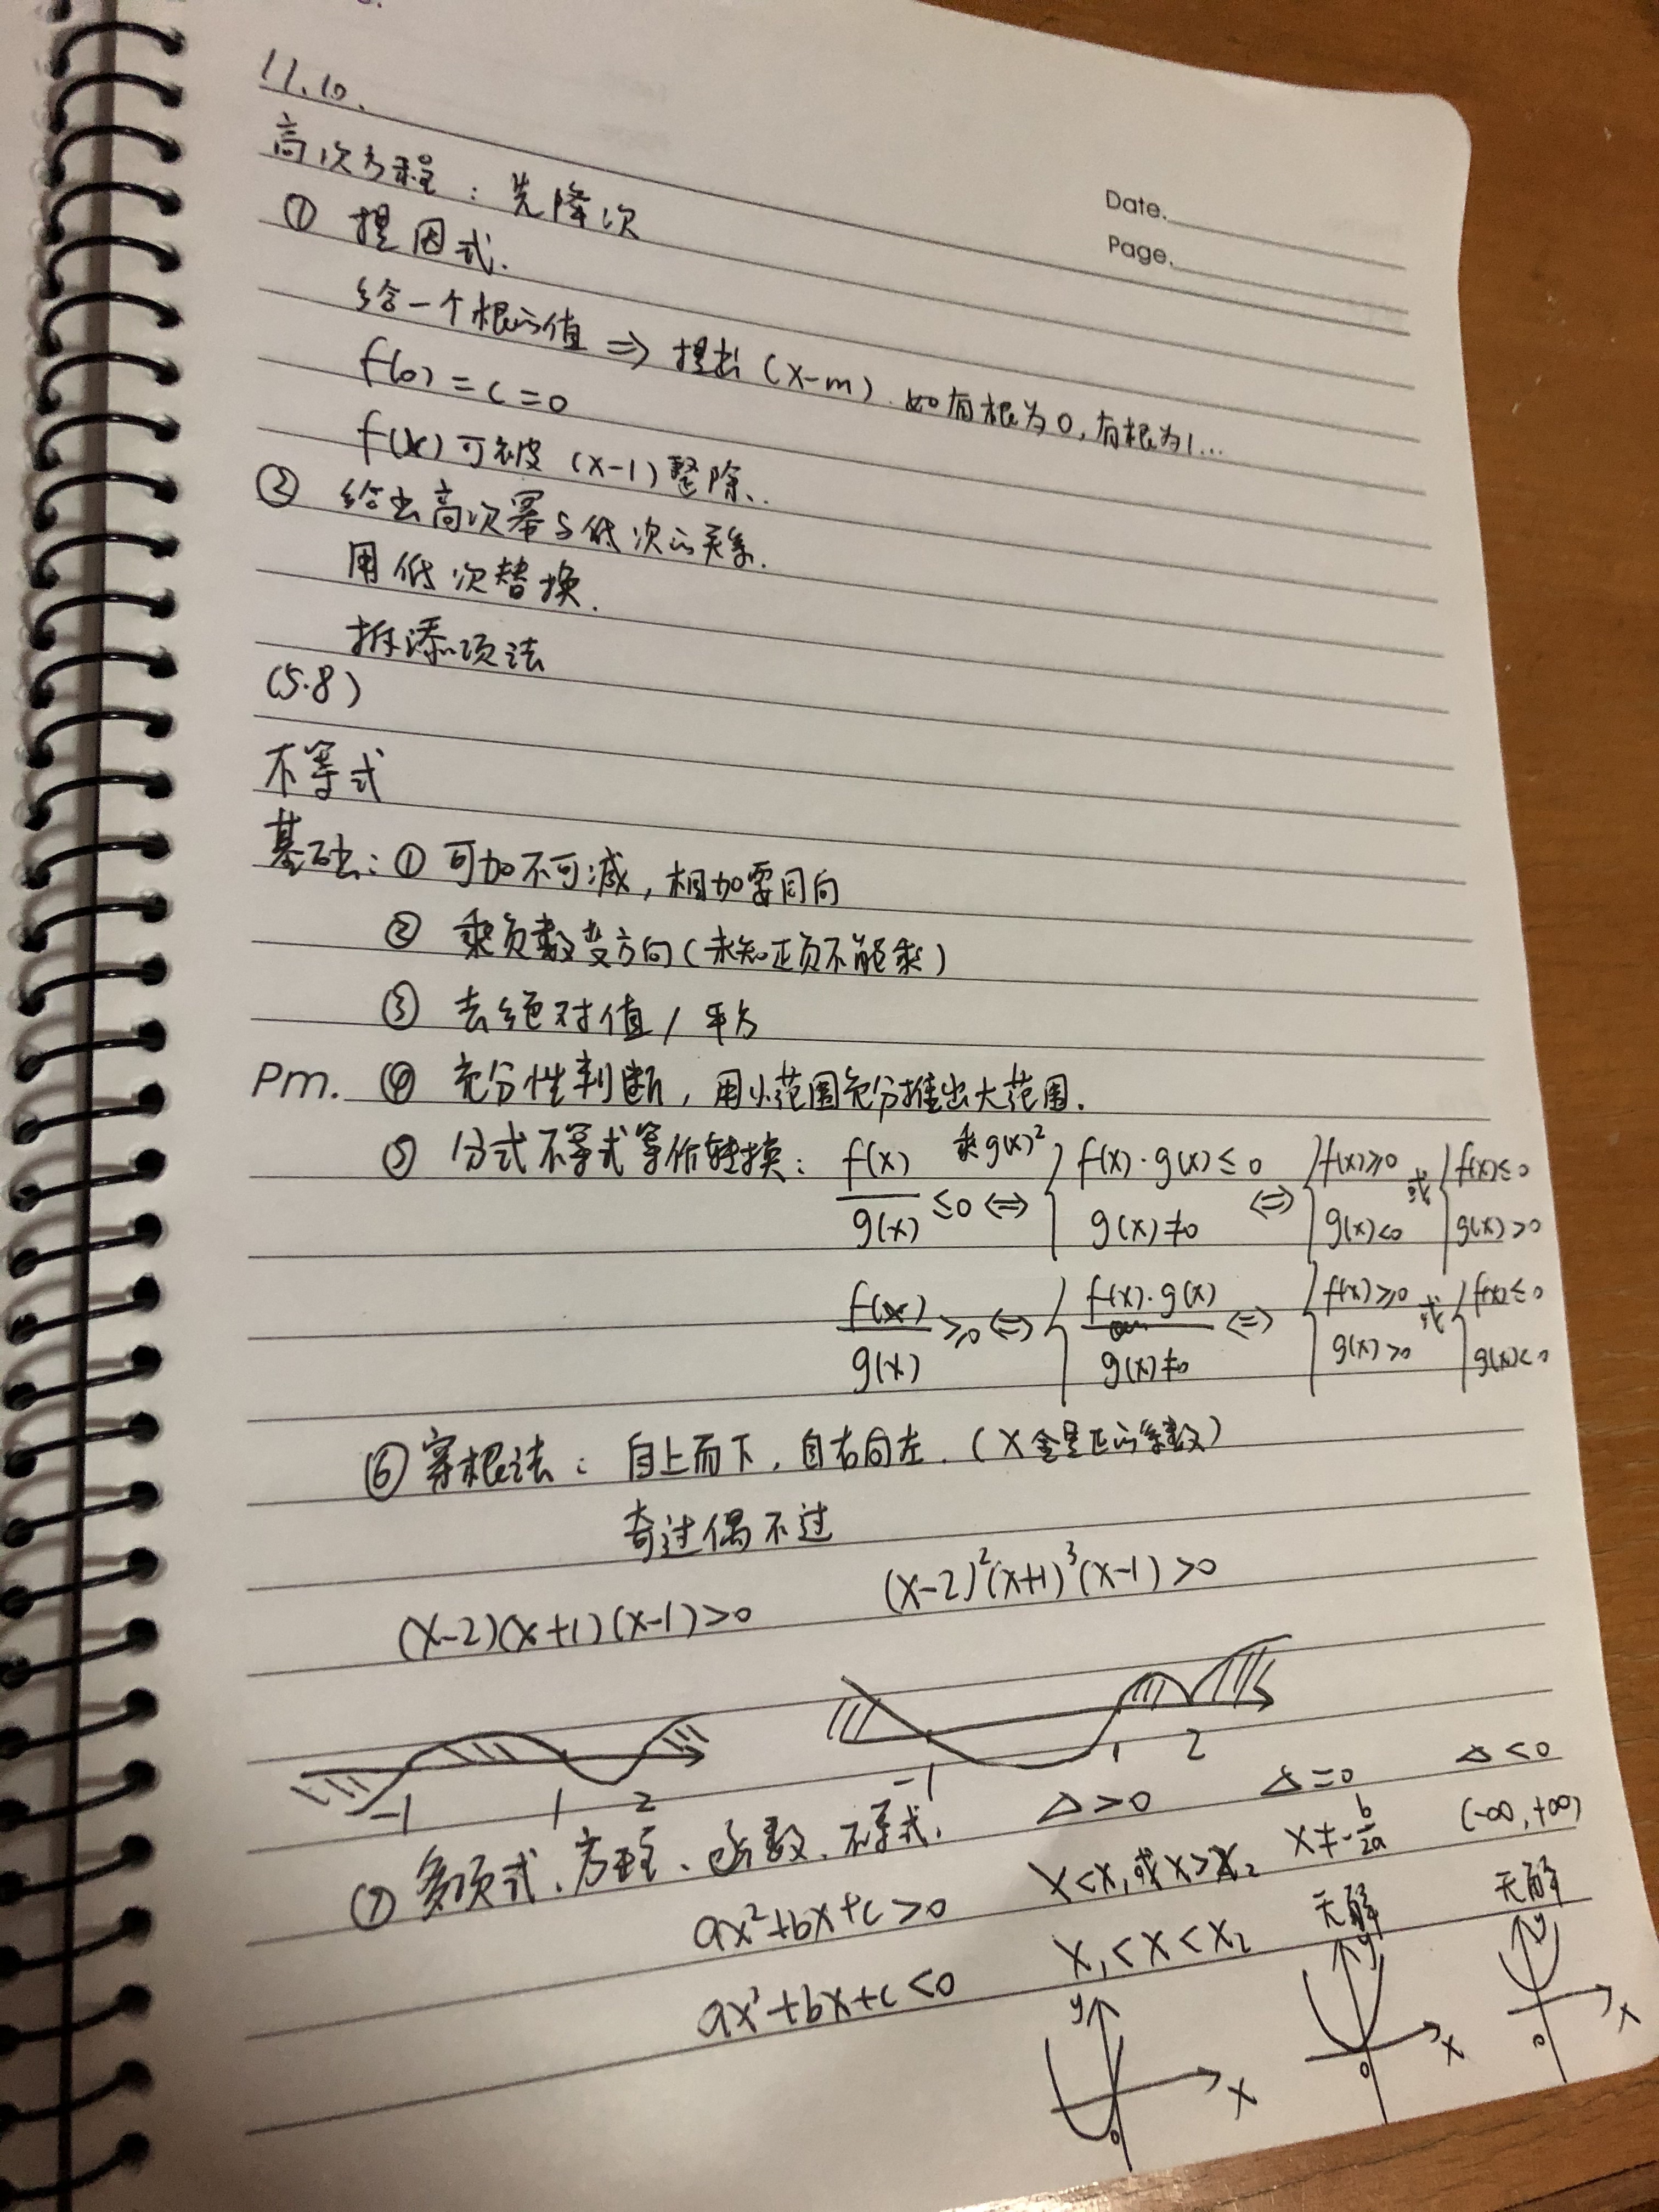 11.10.
Date.
Page.
高次方程：先降次
① 提因式.
给一个根的值 ⇒ 提出 (x-m). 如有根为0,有根为1...
f(0) = c = 0
f(x) 可被 (x-1) 整除..
② 给出高次幂与低次的关系.
用低次替换.
拆添项法
(5.8)
不等式
基础：① 可加不可减，相加要同向
② 乘负数变方向(未知正负不能乘)
③ 去绝对值 / 平方
Pm. ④ 充分性判断，用小范围充分推出大范围.
⑤ 分式不等式等价转换： f(x)/g(x) ≤0 ⇔ 乘g(x)² { f(x)·g(x)≤0 g(x)≠0 ⇔ { f(x)≥0 g(x)<0 或 { f(x)≤0 g(x)>0
f(x)/g(x) ≥0 ⇔ { f(x)·g(x) g(x)≠0 ⇔ { f(x)≥0 g(x)>0 或 { f(x)≤0 g(x)<0
⑥ 穿根法：自上而下，自右向左. (x全是正的系数)
奇过偶不过
(x-2)(x+1)(x-1)>0 (x-2)²(x+1)³(x-1)>0
-1 1 2 -1 1 2
⑦ 多项式、方程、函数、不等式. Δ>0 Δ=0 Δ<0
ax²+bx+c>0 x<x₁或x>x₂ x≠-b/2a (-∞,+∞)
ax²+bx+c<0 x₁<x<x₂ 无解 无解
y x 0 y x 0 y x 0